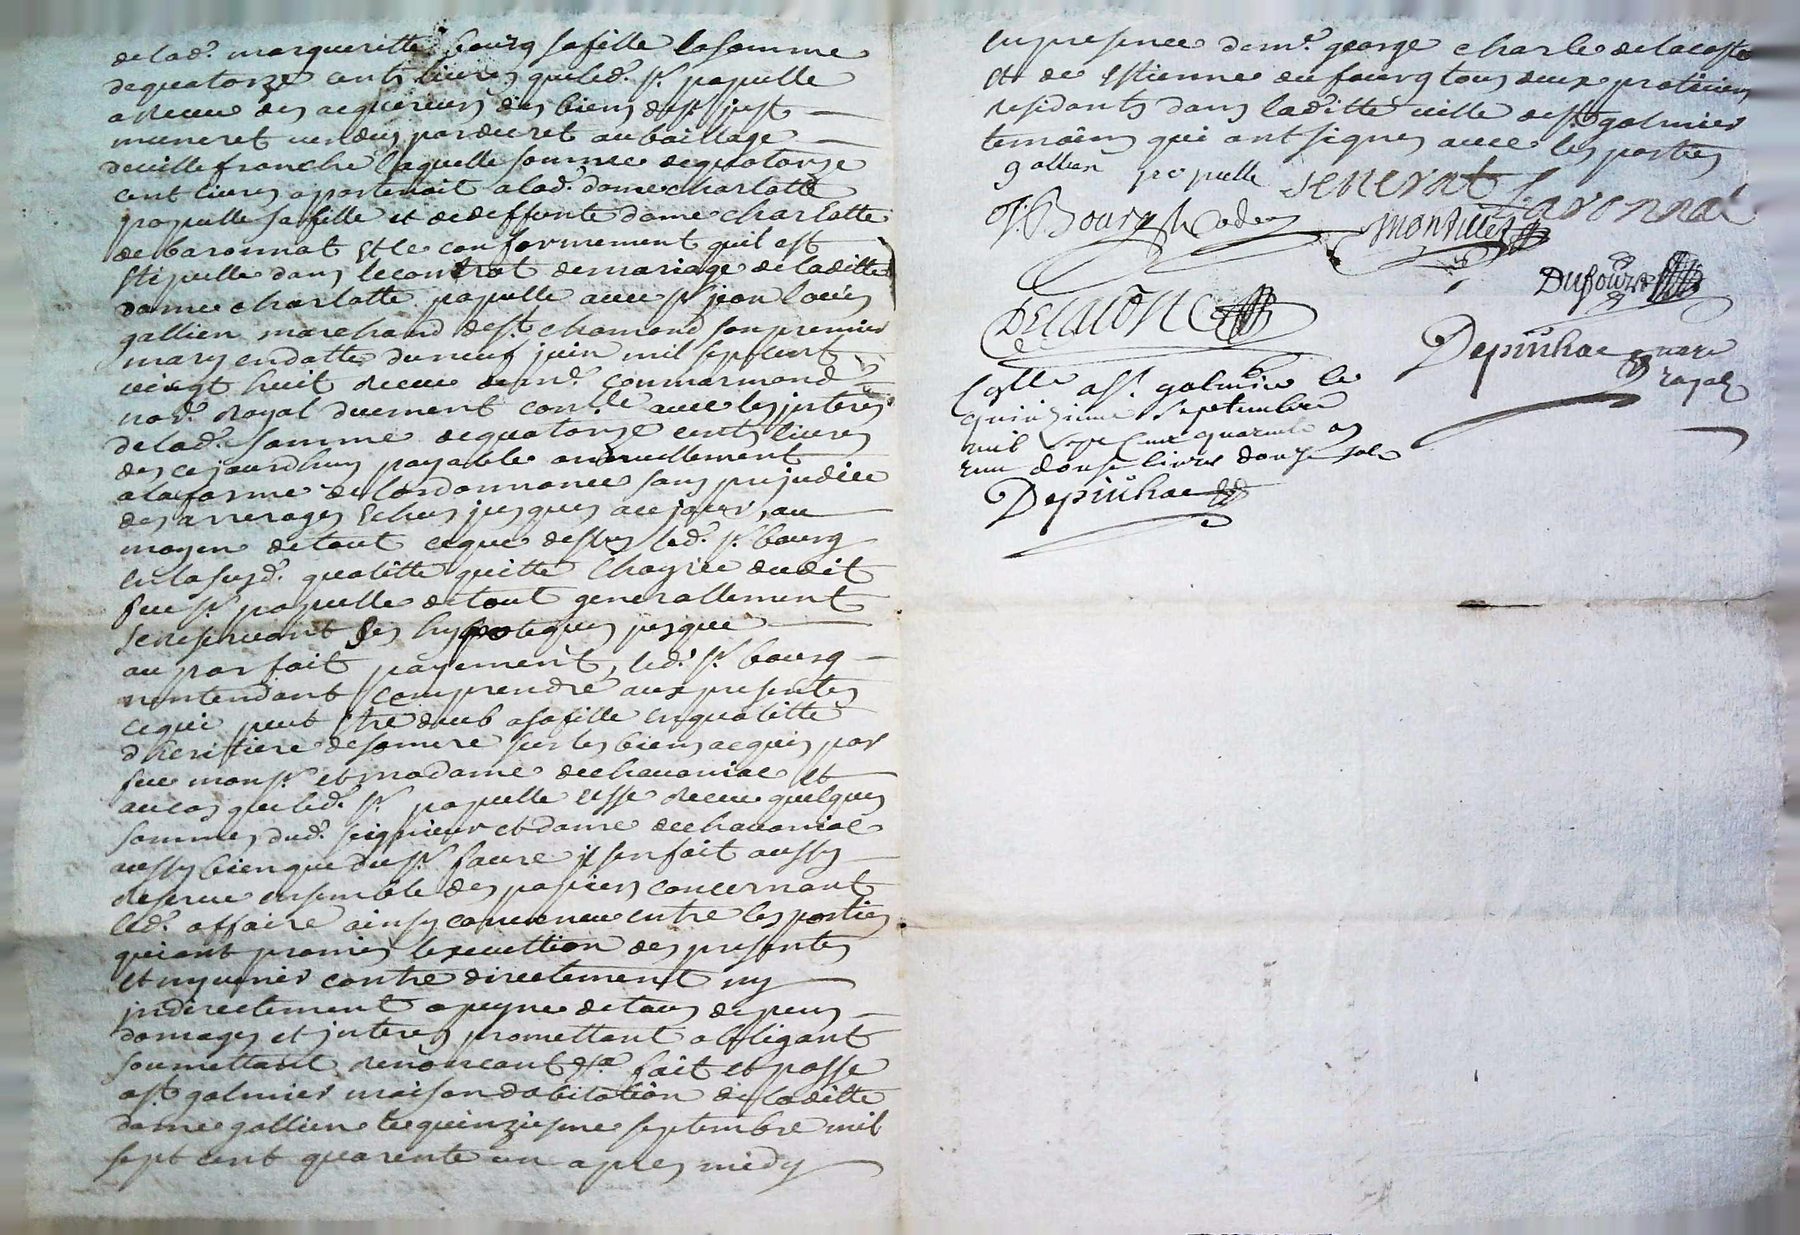 delad.e margueritte bourg safille lasomme
dequatorze cents livres queled. sr papulle
a receu des acquereurs des biens desr just
muneret vendus pardecret aubaillage
devillefranche laquelle somme dequatorze
cent livres apartenoit alad.e dame charlotte
papulle safille et dedeffunte dame charlotte
debaronnat et ce conformement quil est
stipulle dans lecontrat demariage deladitte
dame charlotte papulle avec sr jean louis
gallien marchand dest chamond son premier
mary endatte du neuf juin mil sept cent
vingt huit receu dem.e commarmond
no.re royal duement con.lé avec les jnterés
delad.e somme dequatorze cents livres
des cejourdhuy payable annuellement
alaforme de lordonnance sans prejudice
des arrerages echus jusques acejour, au
moyen detout ceque dessus led. sr bourg
enlasusd.e qualitté quitte lhoyrie dudit
feu sr papulle detout generallement
sereservant ses hypoteques jusque
auparfait payement, led. sr bourg
nentendant comprendre aux presentes
cequi peut être deub asafille enqualitté
dheritiere desamere sur les biens acquis par
feu monsr. et madame dechavaniac et
aucas queled. sr. papulle eusse receu quelques
sommes dud. seigneur et dame dechavaniac
aussy bienque dusr. faure il senfait aussy
reserve ensemble des papiers concernant
led. affaire ainsy convenu entre les parties
quiont promis lexecuttion des presentes
et nyvenir contre directement ny
jndirectement apeyne detous depens
domages et jnterés promettant obligant
soumettant renoncant &a fait et passé
ast galmier maison dabitation de laditte
dame gallien lequinziesme septembre mil
sept cent quarente un apres midy
enpresence dem.e george charle delacoste
et de estienne dufourg tous deux praticiens
residants dans laditte ville dest galmier
temoins qui ont signes avec les parties
gallien papulle
J. Bourg
Montillet
Dufour
Delacoste
Depinhac no.re
royal
Collé a st. galmier le
quinzieme septembre
mil sept cent quarante un
reçu douze livres douze sols
Depinhac